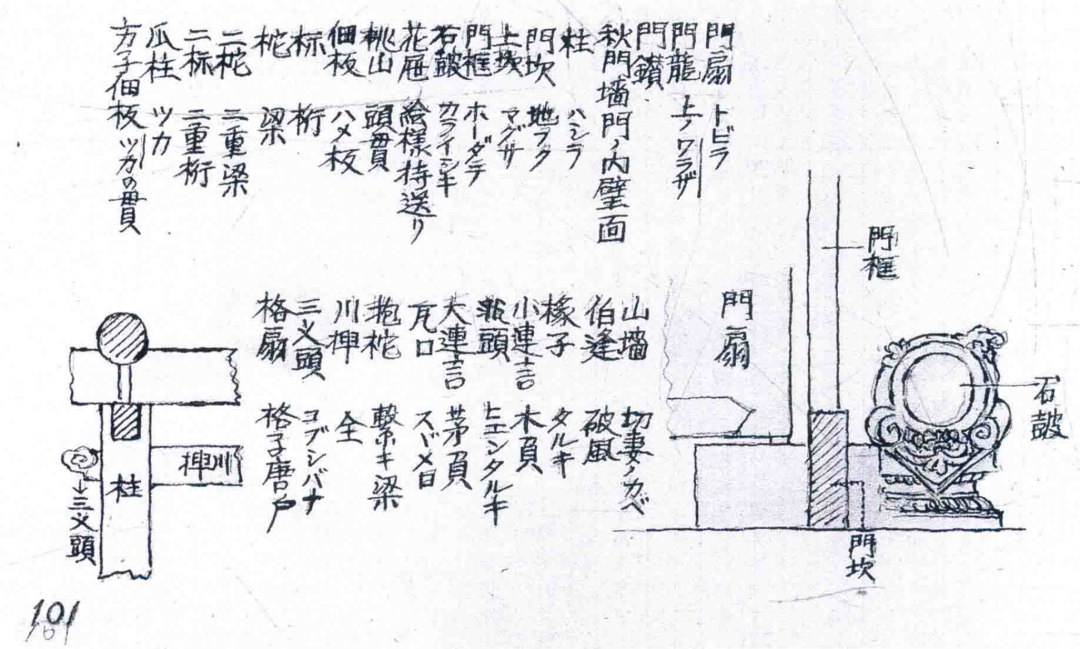 門扇 トビラ
門龍 上ノワラザ
門鑚
秋門墻門ノ内壁面
柱 ハシラ
門坎 地フク
上坎 マグサ
門框 ホーダテ
石皷 カライシキ
花雁 絵様持送り
桃山 頭貫
佃板 ハメ板
标 桁
柁 梁
二柁 二重梁
二标 二重桁
瓜柱 ツカ
方子佃板 ツカの貫
山墻 切妻ノカベ
伯逢 破風
椽子 タルキ
小連吉 木負
頭 ヒエンタルキ
大連吉 茅負
瓦口 スヾメ口
抱柁 繋ギ梁
川押 仝
三义頭 コブシバナ
格扇 格子唐戸
門扇
門框
石皷
門坎
柱
押川
三义頭
101